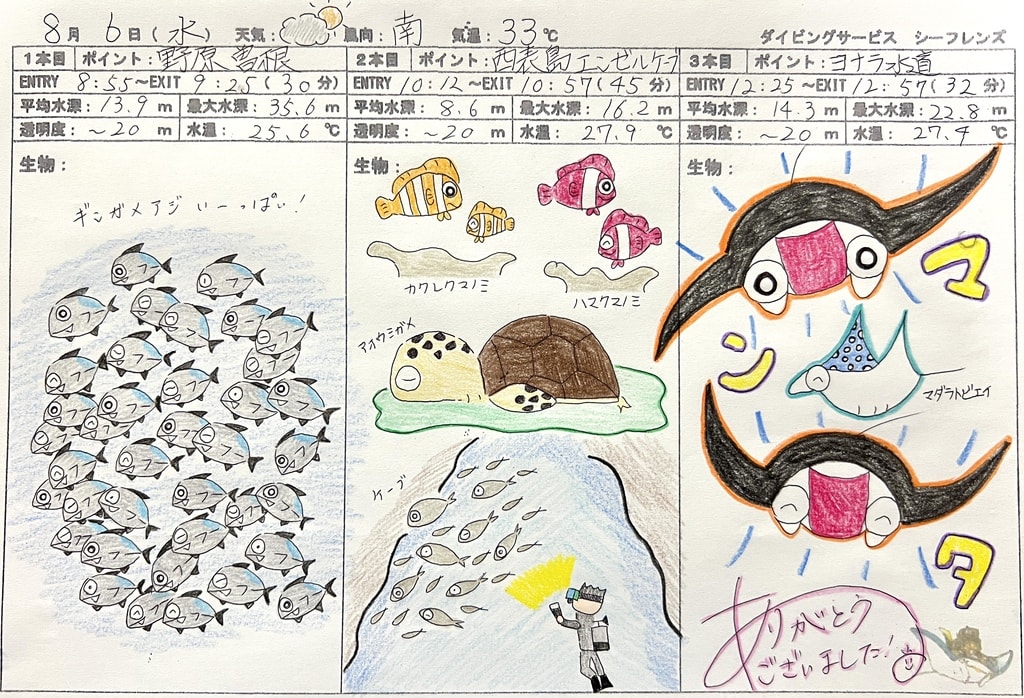 8月 6日(水) 天気: 風向: 南 気温: 33℃ ダイビングサービス シーフレンズ
1本目 ポイント: 野原曽根
ENTRY 8:55~EXIT 9:25(30分)
平均水深: 13.9 m 最大水深: 35.6 m
透明度: ~20 m 水温: 25.6 ℃
生物:
ギンガメアジ いーっぱい!
2本目 ポイント: 西表島エンゼルケーブ
ENTRY 10:12~EXIT 10:57(45分)
平均水深: 8.6 m 最大水深: 16.2 m
透明度: ~20 m 水温: 27.9 ℃
生物:
カクレクマノミ
ハマクマノミ
アオウミガメ
ケーブ
3本目 ポイント: ヨナラ水道
ENTRY 12:25~EXIT 12:57(32分)
平均水深: 14.3 m 最大水深: 22.8 m
透明度: ~20 m 水温: 27.4 ℃
生物:
マンタ
マダラトビエイ
ありがとう
ございました!